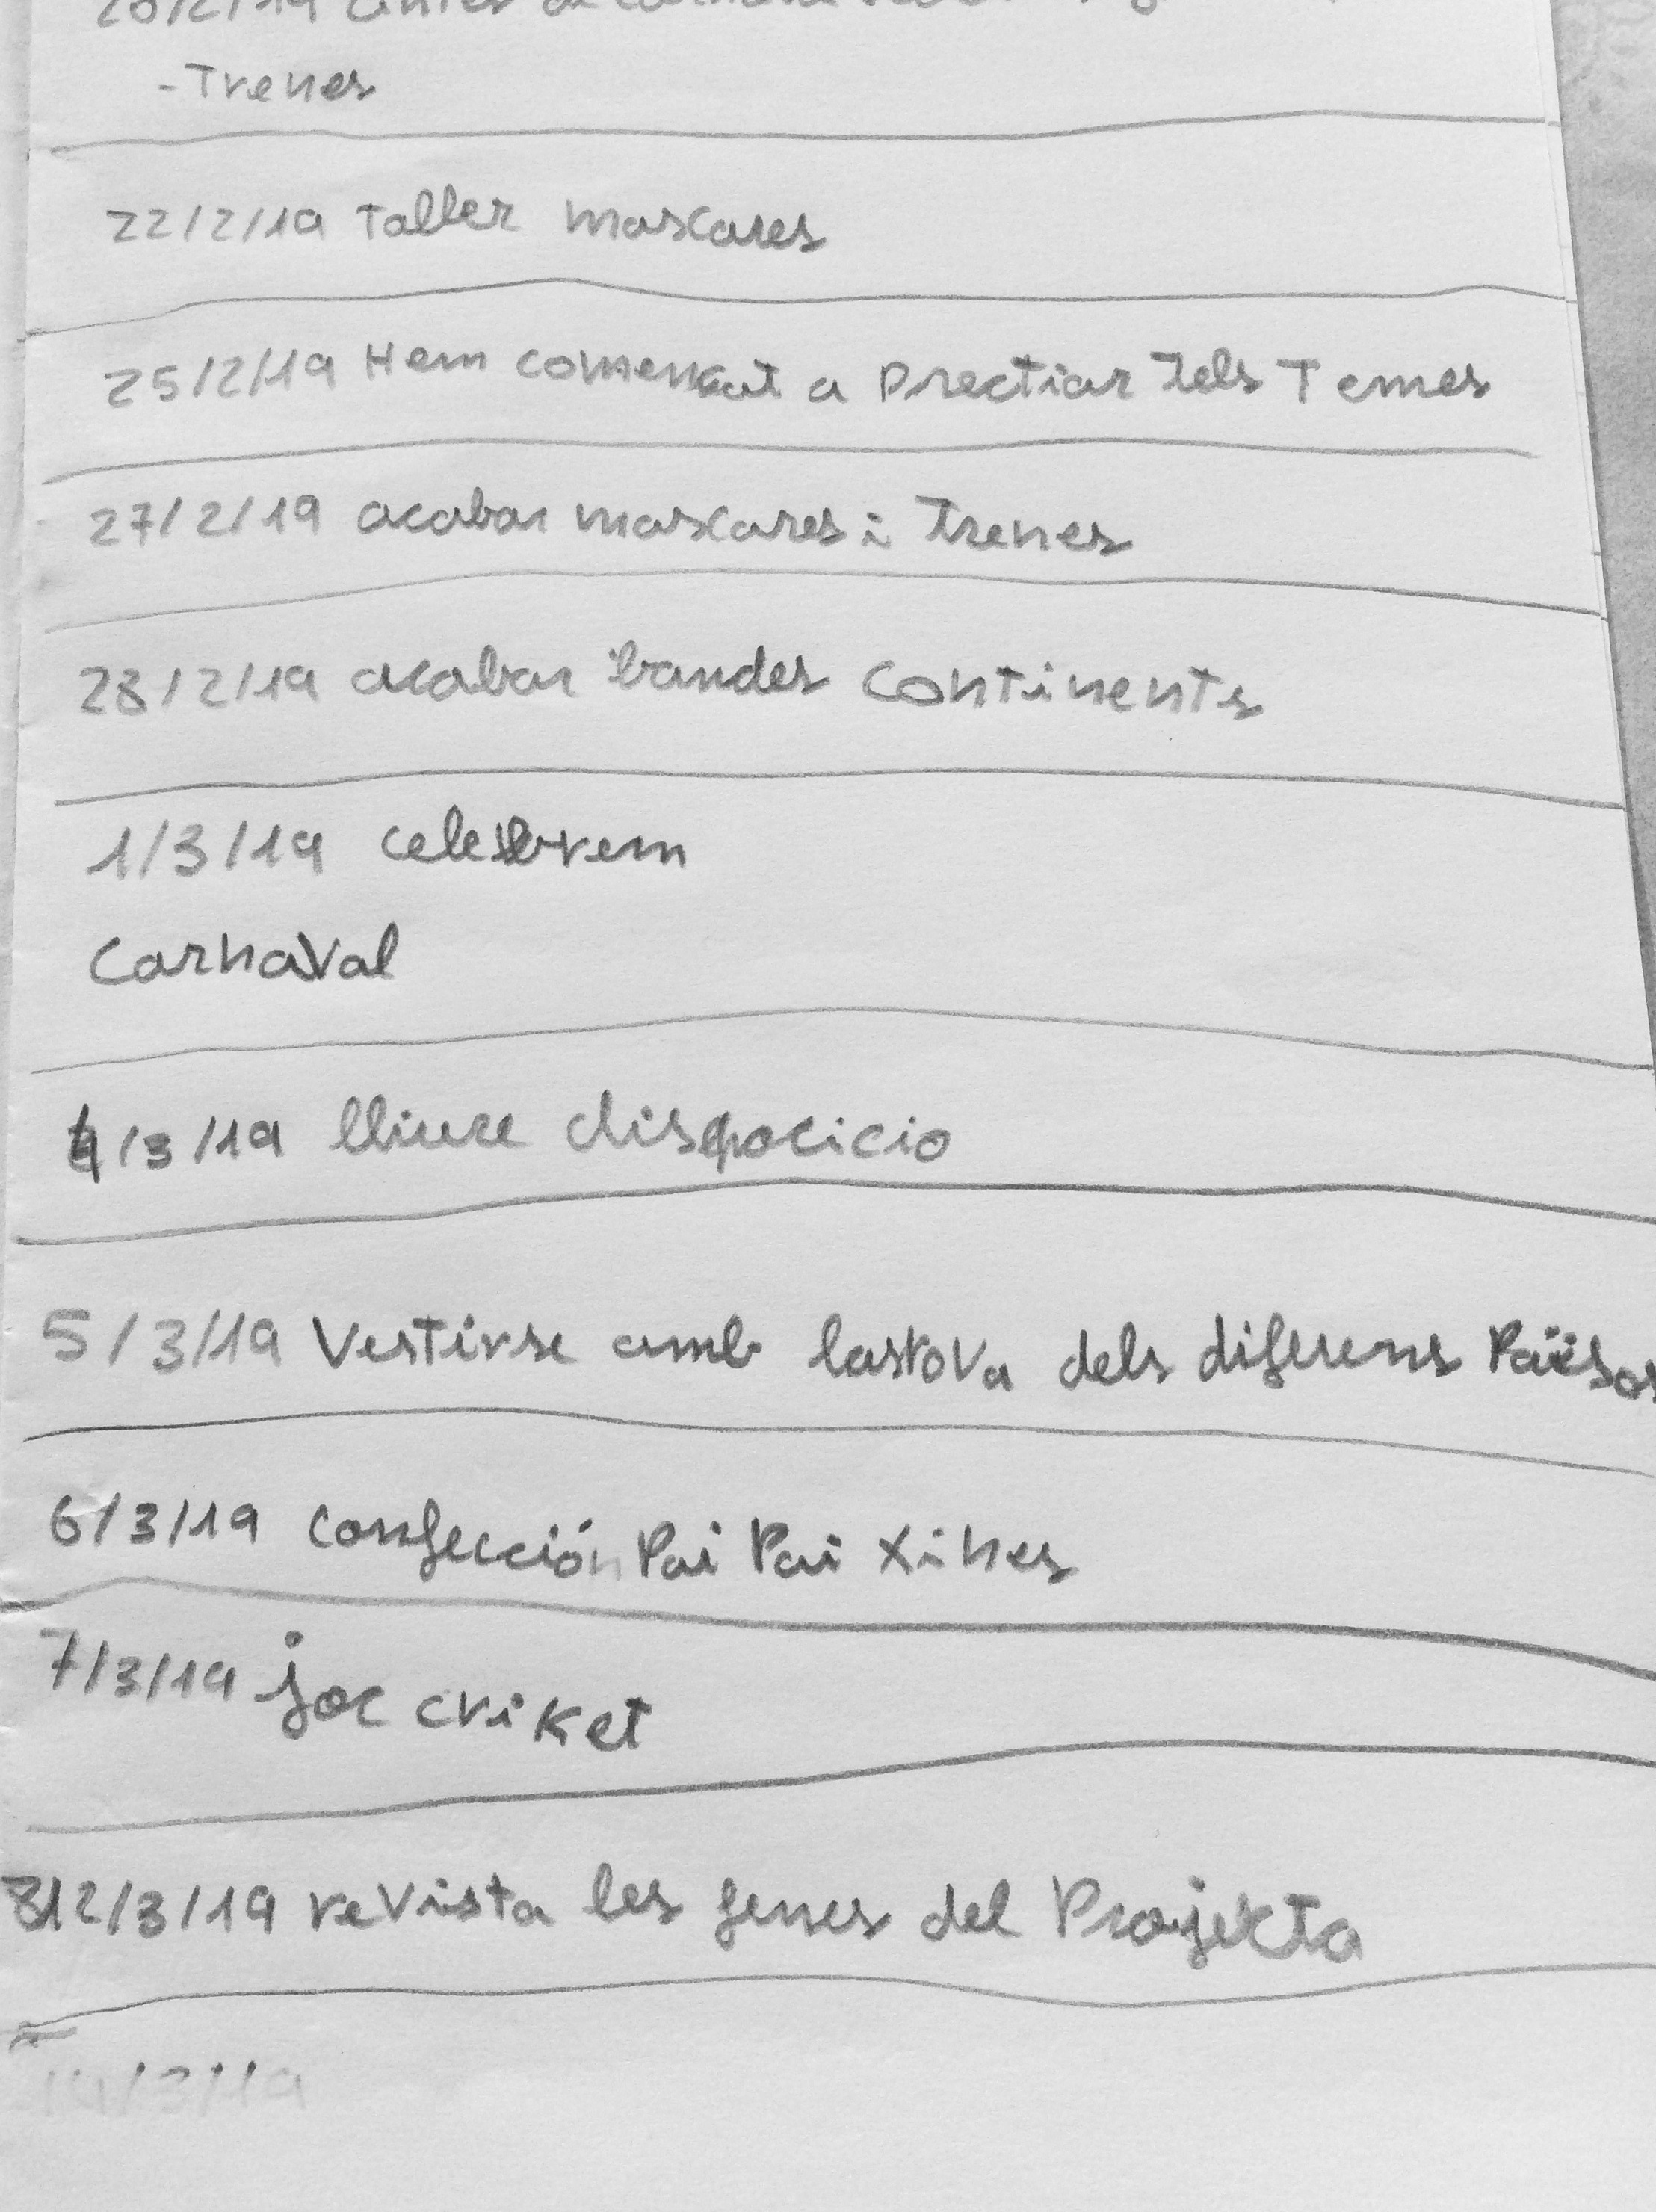 -Trenes
22/2/19 Taller mascares
25/2/19 Hem comensat a prectiar tels Temes
27/2/19 acabar mascares i Trenes
28/2/19 acabar bandes continents
1/3/19 celebrem
Carnaval
4/3/19 lliure dispocicio
5/3/19 Vestirse amb lastova dels diferens Països
6/3/19 confección Pai Pai Xines
7/3/19 joc criket
12/3/19 revista les fenes del Projekta
14/3/19